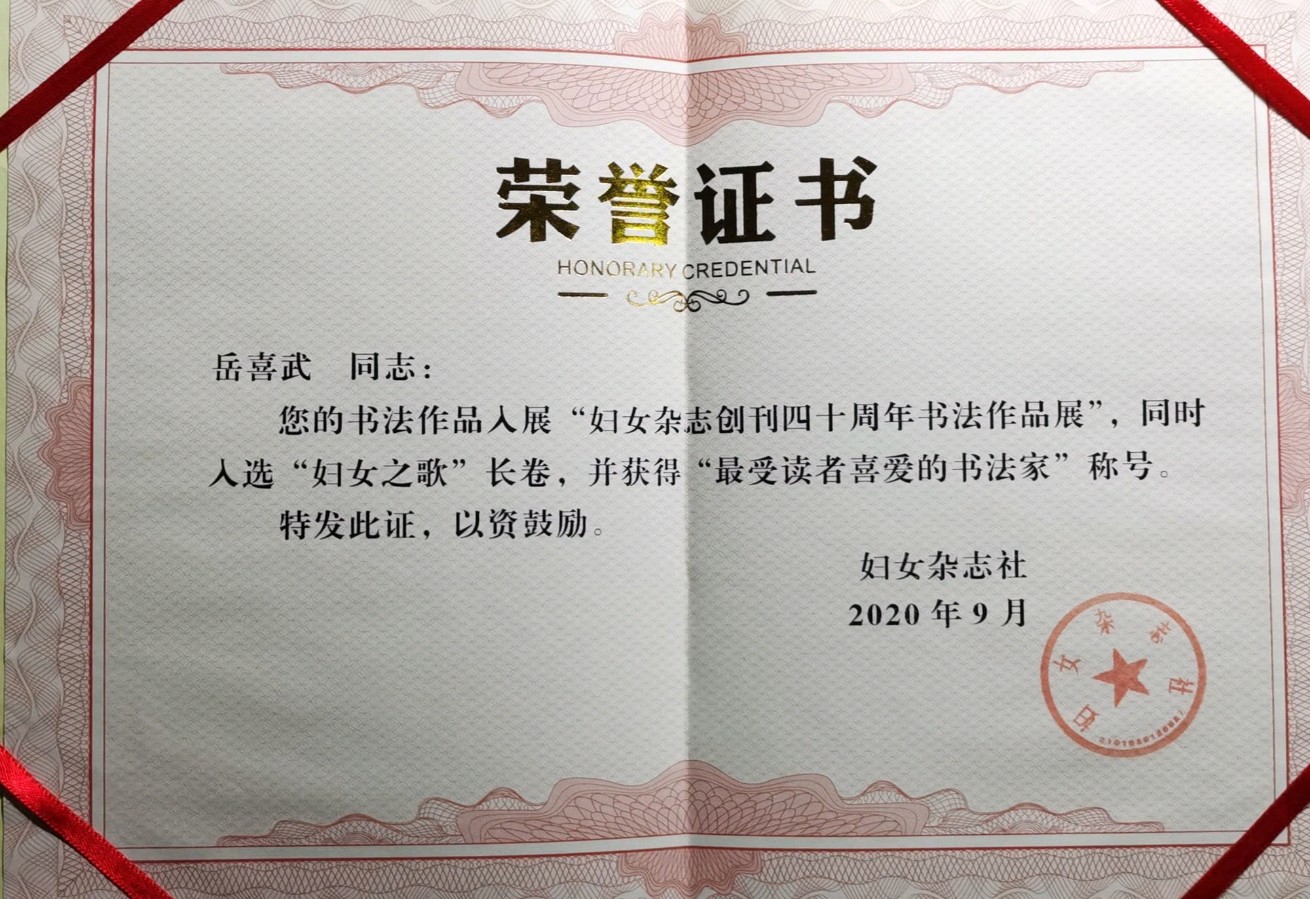 荣誉证书
HONORARY CREDENTIAL
岳喜武 同志：
您的书法作品入展“妇女杂志创刊四十周年书法作品展”，同时
入选“妇女之歌”长卷，并获得“最受读者喜爱的书法家”称号。
特发此证，以资鼓励。
妇女杂志社
2020 年 9 月
妇女杂志社